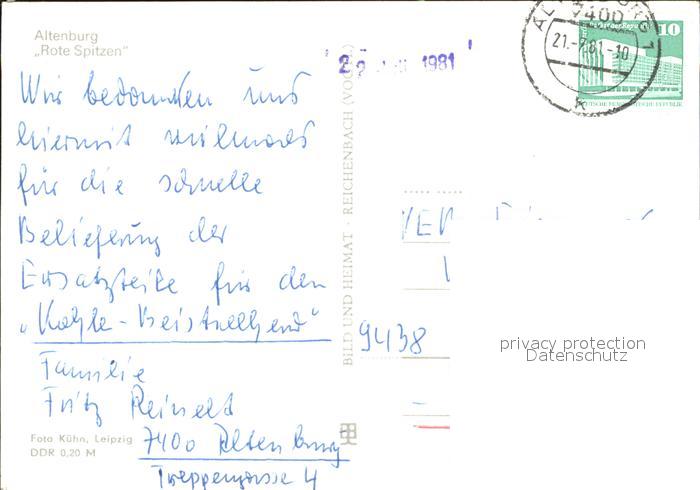 Altenburg
„Rote Spitzen"
Wir bedanken uns
hiermit vielmals
für die schnelle
Belieferung der
Ersatzteile für den
"Kohle-Beistellherd"
Familie
Fritz Reinelt
7400 Altenburg
Treppengasse 4
Foto Kühn, Leipzig
DDR 0,20 M
BILD UND HEIMAT · REICHENBACH
1981
7400
21.-7.81-10
k
10
VEB
9438
privacy protection
Datenschutz